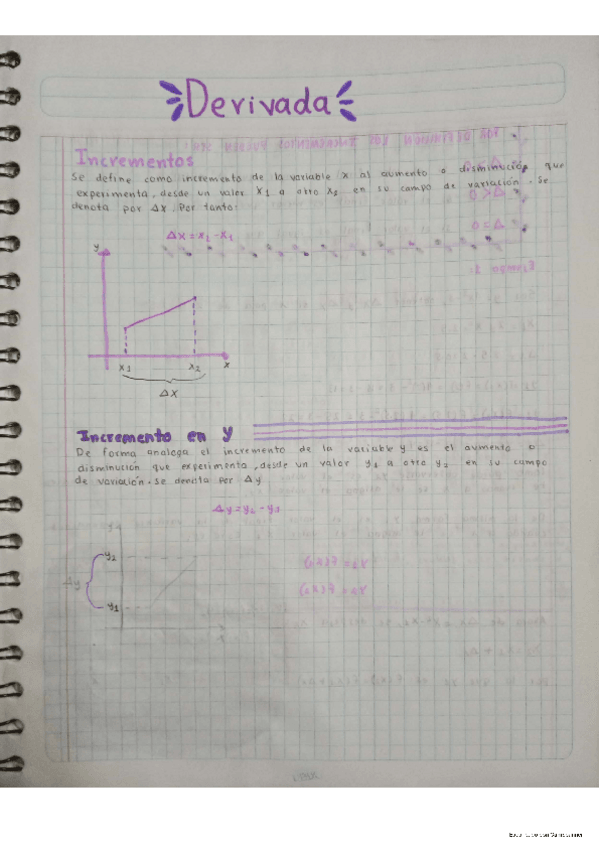 Derivada
Incrementos
Se define como incremento de la variable x al aumento o disminución que
experimenta, desde un valor x1 a otro x2 en su campo de variación. Se
denota por Δx. Por tanto:
Δx = x2 - x1
y
x1 x2 x
Δx
Incremento en y
De forma analoga el incremento de la variable y es el aumento o
disminución que experimenta, desde un valor y1 a otro y2 en su campo
de variación. Se denota por Δy
Δy = y2 - y1
y2
Δy
y1